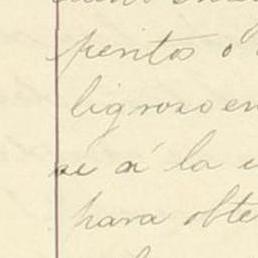 peritos o
ligroso en
se á la
para obte